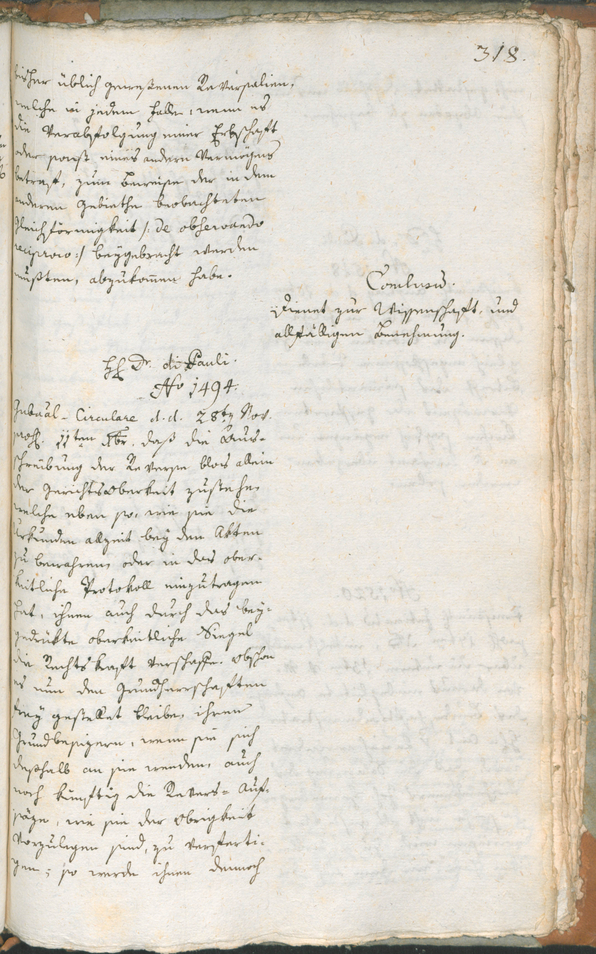 318.
bisher üblich gewesenen Reversalien,
welche in jedem Falle, wenn es
die Verabfolgung einer Erbschaft
oder sonst eines andern Vermögens
betraf, zum Beweise der in dem
anderen Gebiethe beobachteten
Gleichförmigkeit /: de observando
reciproco :/ beygebracht werden
mußten, abzukommen habe.
Conclusum.
Dienet zur Wissenschaft, und
allfälligen Benehmung.
H H Dr. di Pauli.
No 1494.
Gubnal-Circulare d. d. 28ten Nov.
praes. 11ten Xbr. daß die Aus-
schreibung der Reverse blos allein
der Gerichtsoberkeit zustehe,
welche eben so, wie sie die
Urkunden allzeit bey den Akten
zu bewahren, oder in das ober-
keitliche Protokoll einzutragen
hat, ihnen auch durch das bey-
gedrükte oberkeitliche Siegel
die Rechtskraft verschaffe. Obschon
es nun den Grundherrschaften
frey gestellet bleibe, ihren
Grundbesizern, wenn sie sich
deßhalb an sie wenden, auch
noch künftig die Revers-Auf-
säze, wie sie der Obrigkeit
vorzulegen sind, zu verferti-
gen; so werde ihnen dennoch